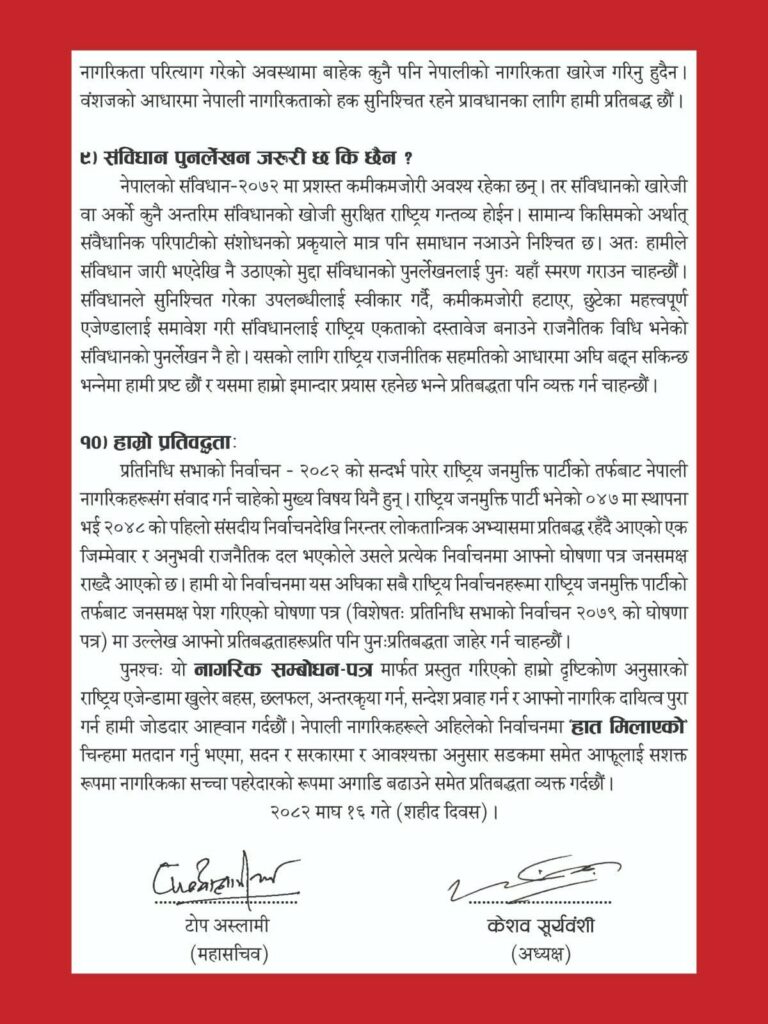 नागरिकता परित्याग गरेको अवस्थामा बाहेक कुनै पनि नेपालीको नागरिकता खारेज गरिनु हुदैन ।
वंशजको आधारमा नेपाली नागरिकताको हक सुनिश्चित रहने प्रावधानका लागि हामी प्रतिबद्ध छौं ।
९) संविधान पुनर्लेखन जरुरी छ कि छैन ?
नेपालको संविधान-२०७२ मा प्रशस्त कमीकमजोरी अवश्य रहेका छन् । तर संविधानको खारेजी
वा अर्को कुनै अन्तरिम संविधानको खोजी सुरक्षित राष्ट्रिय गन्तव्य होईन । सामान्य किसिमको अर्थात्
संवैधानिक परिपाटीको संशोधनको प्रकृयाले मात्र पनि समाधान नआउने निश्चित छ । अतः हामीले
संविधान जारी भएदेखि नै उठाएको मुद्दा संविधानको पुनर्लेखनलाई पुनः यहाँ स्मरण गराउन चाहन्छौं ।
संविधानले सुनिश्चित गरेका उपलब्धीलाई स्वीकार गर्दै, कमीकमजोरी हटाएर, छुटेका महत्त्वपूर्ण
एजेण्डालाई समावेश गरी संविधानलाई राष्ट्रिय एकताको दस्तावेज बनाउने राजनैतिक विधि भनेको
संविधानको पुनर्लेखन नै हो । यसको लागि राष्ट्रिय राजनीतिक सहमतिको आधारमा अघि बढ्न सकिन्छ
भन्नेमा हामी प्रष्ट छौं र यसमा हाम्रो इमान्दार प्रयास रहनेछ भन्ने प्रतिबद्धता पनि व्यक्त गर्न चाहन्छौं ।
१०) हाम्रो प्रतिवद्धताः
प्रतिनिधि सभाको निर्वाचन - २०८२ को सन्दर्भ पारेर राष्ट्रिय जनमुक्ति पार्टीको तर्फबाट नेपाली
नागरिकहरूसंग संवाद गर्न चाहेको मुख्य विषय यिनै हुन् । राष्ट्रिय जनमुक्ति पार्टी भनेको ०४७ मा स्थापना
भई २०४८ को पहिलो संसदीय निर्वाचनदेखि निरन्तर लोकतान्त्रिक अभ्यासमा प्रतिबद्ध रहँदै आएको एक
जिम्मेवार र अनुभवी राजनैतिक दल भएकोले उसले प्रत्येक निर्वाचनमा आफ्नो घोषणा पत्र जनसमक्ष
राख्दै आएको छ । हामी यो निर्वाचनमा यस अघिका सबै राष्ट्रिय निर्वाचनहरूमा राष्ट्रिय जनमुक्ति पार्टीको
तर्फबाट जनसमक्ष पेश गरिएको घोषणा पत्र (विशेषतः प्रतिनिधि सभाको निर्वाचन २०७९ को घोषणा
पत्र) मा उल्लेख आफ्नो प्रतिबद्धताहरूप्रति पनि पुनःप्रतिबद्धता जाहेर गर्न चाहन्छौं ।
पुनश्चः यो नागरिक सम्बोधन-पत्र मार्फत प्रस्तुत गरिएको हाम्रो दृष्टिकोण अनुसारको
राष्ट्रिय एजेन्डामा खुलेर बहस, छलफल, अन्तरकृया गर्न, सन्देश प्रवाह गर्न र आफ्नो नागरिक दायित्व पुरा
गर्न हामी जोडदार आह्वान गर्दछौं । नेपाली नागरिकहरूले अहिलेको निर्वाचनमा 'हात मिलाएको'
चिन्हमा मतदान गर्नु भएमा, सदन र सरकारमा र आवश्यक्ता अनुसार सडकमा समेत आफूलाई सशक्त
रूपमा नागरिकका सच्चा पहरेदारको रूपमा अगाडि बढाउने समेत प्रतिबद्धता व्यक्त गर्दछौं ।
२०८२ माघ १६ गते (शहीद दिवस) ।
टोप अस्लामी
(महासचिव)
केशव सूर्यवंशी
(अध्यक्ष)